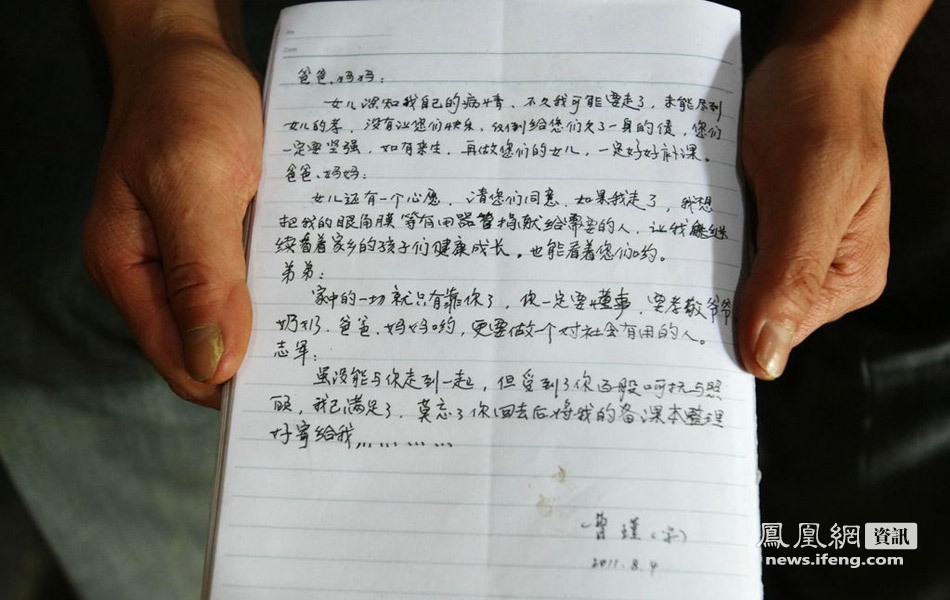 No.
Date
爸爸、妈妈:
女儿深知我自己的病情、不久我可能要走了,未能尽到
女儿的孝,没有让您们快乐,反倒给您们欠了一身的债,您们
一定要坚强,如有来生,再做您们的女儿,一定好好补课。
爸爸、妈妈:
女儿还有一个心愿,请您们同意,如果我走了,我想
把我的眼角膜等有用器官捐献给需要的人,让我继
续看着家乡的孩子们健康成长,也能看着您们哟。
弟弟:
家中的一切就只有靠你了,你一定要懂事,要孝敬爷爷
奶奶、爸爸、妈妈哟,更要做个对社会有用的人。
志军:
虽没能与你走到一起,但受到了你百般呵抚与照
顾,我已满足了,莫忘了你回去后将我的备课本整理
好寄给我,,, ,,, ,,, ,,,
曾瑾(字)
2011.8.9
鳳凰網 資訊
news.ifeng.com